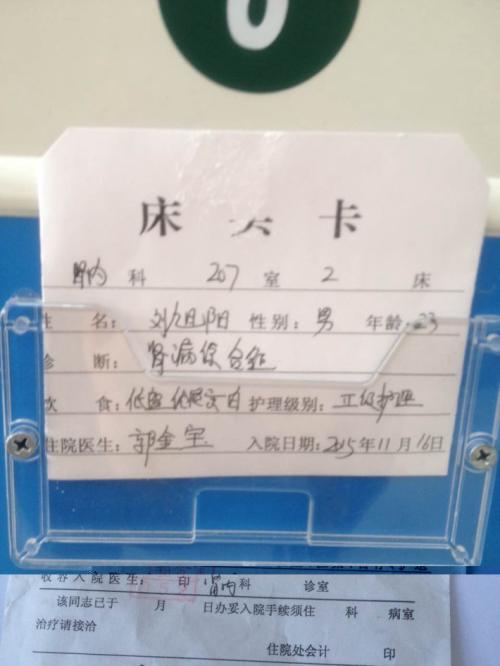 床头卡
肾内 科 207 室 2 床
姓 名: 刘旭阳 性别: 男 年龄: 23
诊 断: 肾病综合征
饮 食: 低盐优质蛋白 护理级别: 护理
住院医生: 郭金宝 入院日期: 2015年11月16日
收容入院医生: 印 肾内科 诊室
该同志已于 月 日办妥入院手续须住 科 病室
治疗请接洽
住院处会计 印